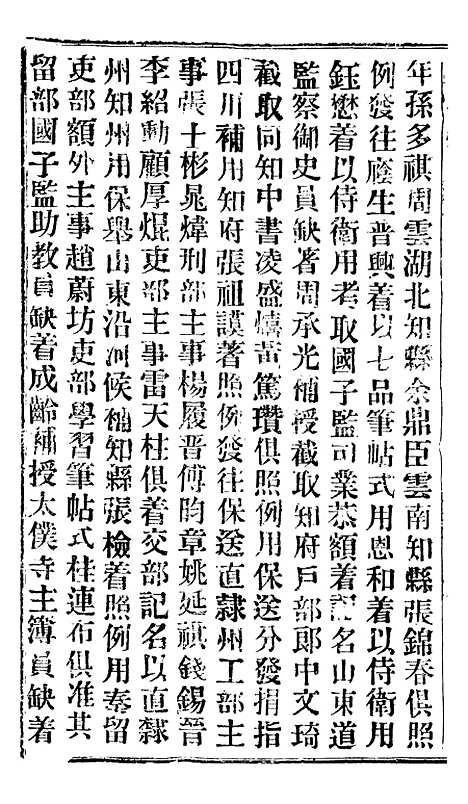 年孫多祺周雲湖北知縣余鼎臣雲南知縣張錦春俱照
例發往廕生普興着以七品筆帖式用恩和着以侍衛用
鈺懋着以侍衛用考取國子監司業恭額着記名山東道
監察御史員缺著周承光補授截取知府戶部郎中文琦
截取同知中書凌盛熺黃篤瓚俱照例用保送分發捐指
四川補用知府張祖謨著照例發往保送直隸州工部主
事張士彬晁煒刑部主事楊履晉傅昀章姚延祺錢錫晉
李紹勳顧厚焜吏部主事雷天柱俱着交部記名以直隸
州知州用保舉山東沿河候補知縣張檢着照例用奏留
吏部額外主事趙蔚坊吏部學習筆帖式桂連布俱准其
留部國子監助教員缺着成齡補授太僕寺主簿員缺着